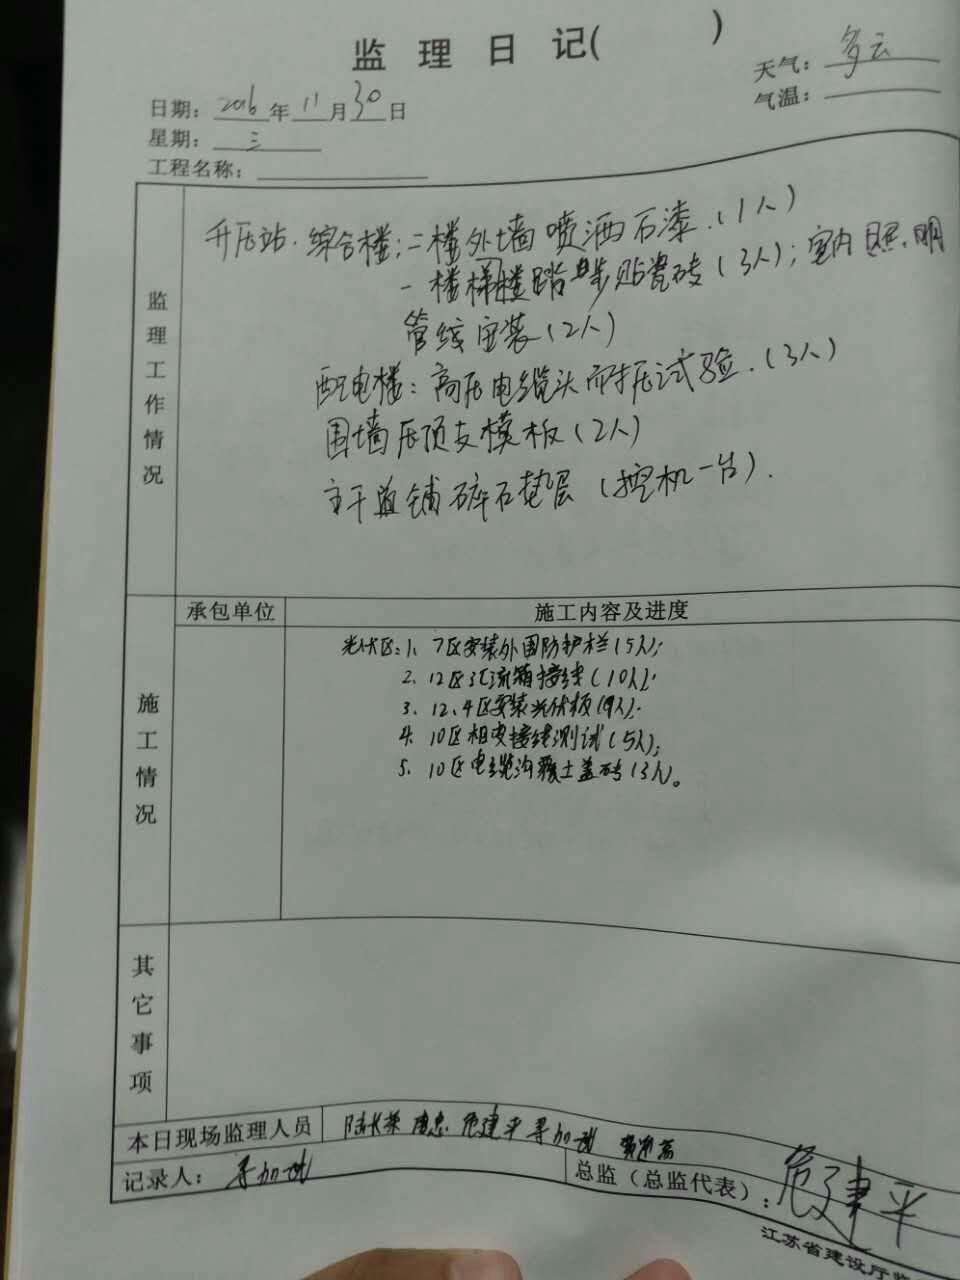 监理日记(          )
天气：多云
气温：
日期：2016年11月30日
星期：三
工程名称：
监理工作情况
升压站.综合楼：二楼外墙喷洒石漆.(1人)
一楼梯楼踏步贴瓷砖(3人)；室内照明
管线安装(2人)
配电楼：高压电缆头耐压试验.(3人)
围墙压顶支模板(2人)
主干道铺碎石垫层(挖机一台).
施工情况
承包单位 施工内容及进度
光伏区：1、7区安装外围防护栏(5人)；
2、12区汇流箱接线(10人)；
3、12、4区安装光伏板(9人)；
4、10区相变接线测试(5人)；
5、10区电缆沟覆土盖砖(3人)。
其它事项
本日现场监理人员 危建平
记录人：
总监（总监代表）：危建平
江苏省建设厅监